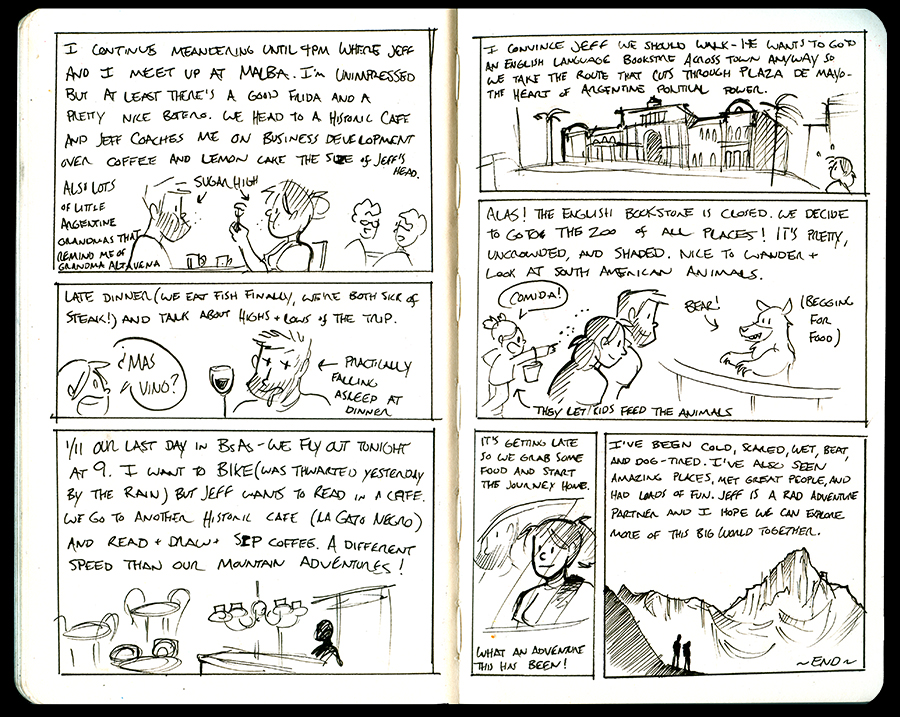 I CONTINUE MEANDERING UNTIL 4PM WHERE JEFF
AND I MEET UP AT MALBA. I'M UNIMPRESSED
BUT AT LEAST THERE'S A GOOD FRIDA AND A
PRETTY NICE BOTERO. WE HEAD TO A HISTORIC CAFE
AND JEFF COACHES ME ON BUSINESS DEVELOPMENT
OVER COFFEE AND LEMON CAKE THE SIZE OF JEFF'S
HEAD.
ALSO LOTS
OF LITTLE
ARGENTINE
GRANDMAS THAT
REMIND ME OF
GRANDMA ALTAVENA
SUGAR HIGH
LATE DINNER (WE EAT FISH FINALLY, WE'RE BOTH SICK OF
STEAK!) AND TALK ABOUT HIGHS + LOWS OF THE TRIP.
¿MAS
VINO?
← PRACTICALLY
FALLING
ASLEEP AT
DINNER
1/11 OUR LAST DAY IN BsAs - WE FLY OUT TONIGHT
AT 9. I WANT TO BIKE (WAS THWARTED YESTERDAY
BY THE RAIN) BUT JEFF WANTS TO READ IN A CAFE.
WE GO TO ANOTHER HISTORIC CAFE (LA GATO NEGRO)
AND READ + DRAW + SIP COFFEE. A DIFFERENT
SPEED THAN OUR MOUNTAIN ADVENTURES!
I CONVINCE JEFF WE SHOULD WALK - HE WANTS TO GO TO
AN ENGLISH LANGUAGE BOOKSTORE ACROSS TOWN ANYWAY SO
WE TAKE THE ROUTE THAT CUTS THROUGH PLAZA DE MAYO -
THE HEART OF ARGENTINE POLITICAL POWER.
ALAS! THE ENGLISH BOOKSTORE IS CLOSED. WE DECIDE
TO GO TO THE ZOO OF ALL PLACES! IT'S PRETTY,
UNCROWDED, AND SHADED. NICE TO WANDER +
LOOK AT SOUTH AMERICAN ANIMALS.
COMIDA!
BEAR!
(BEGGING
FOR
FOOD)
THEY LET KIDS FEED THE ANIMALS
IT'S GETTING LATE
SO WE GRAB SOME
FOOD AND START
THE JOURNEY HOME.
WHAT AN ADVENTURE
THIS HAS BEEN!
I'VE BEEN COLD, SCARED, WET, BEAT,
AND DOG-TIRED. I'VE ALSO SEEN
AMAZING PLACES, MET GREAT PEOPLE, AND
HAD LOADS OF FUN. JEFF IS A RAD ADVENTURE
PARTNER AND I HOPE WE CAN EXPLORE
MORE OF THIS BIG WORLD TOGETHER.
~END~